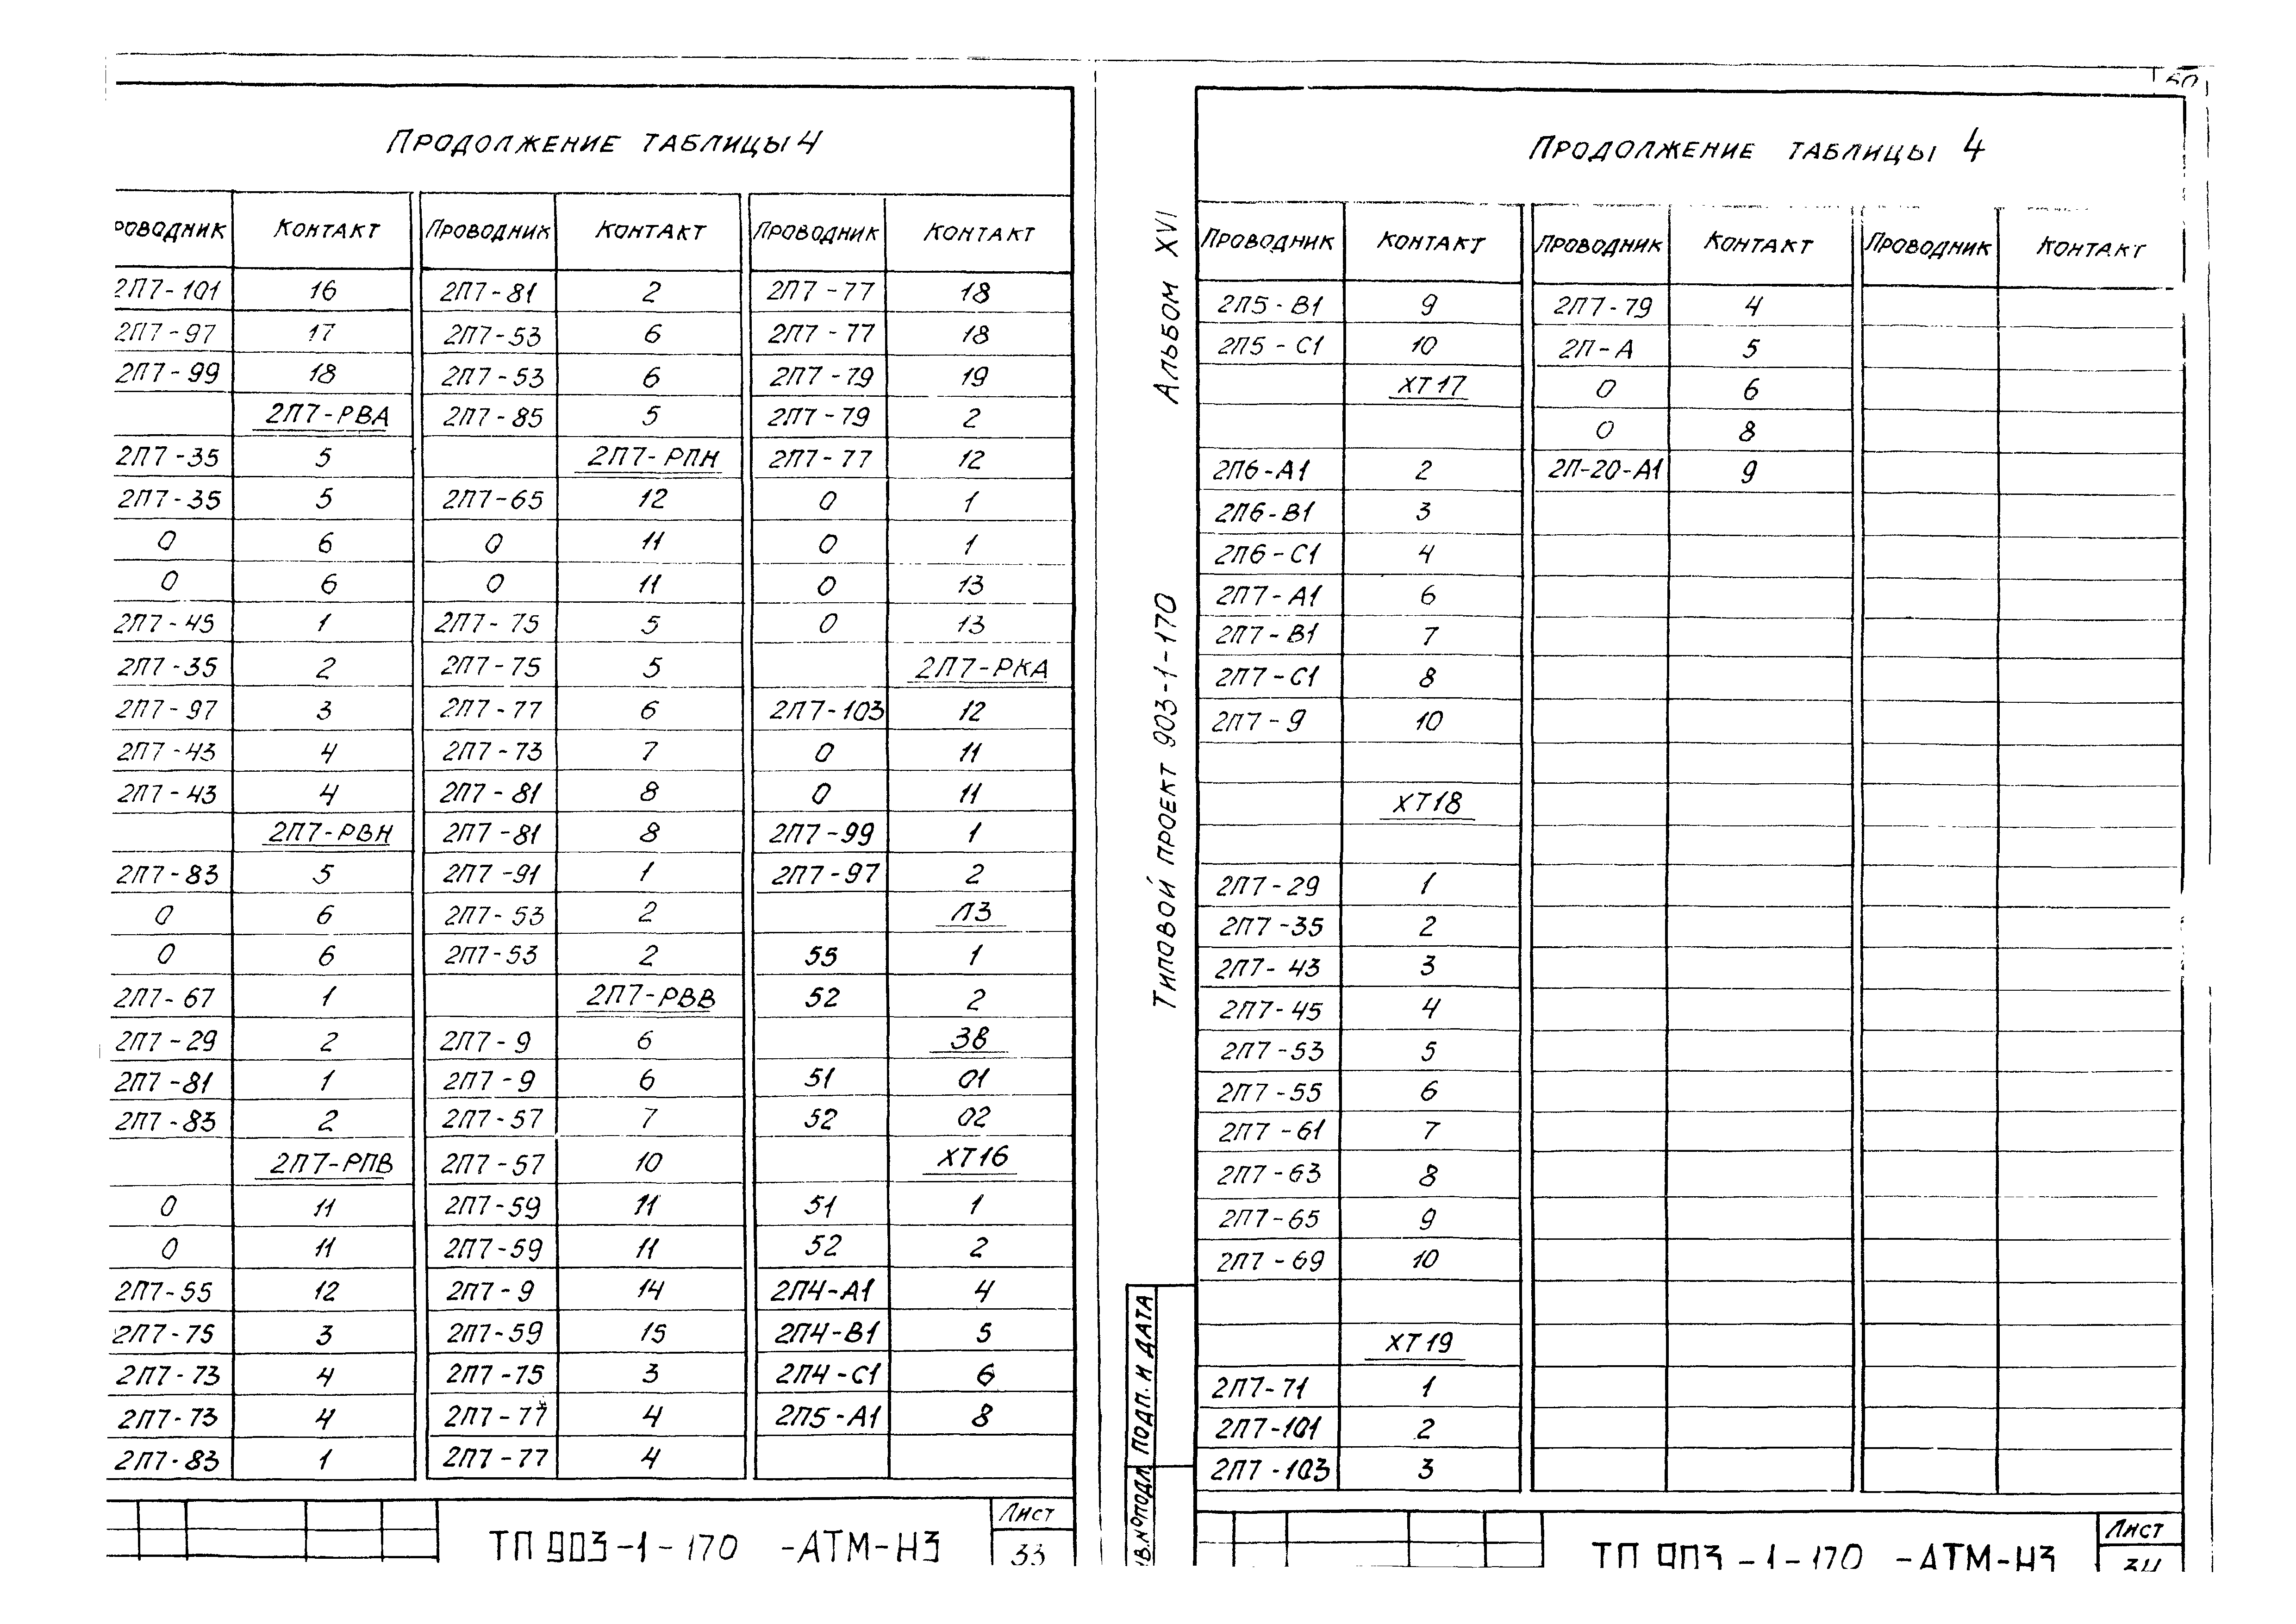 Продолжение таблицы 4
роводник Контакт Проводник Контакт Проводник Контакт
2П7-101 16 2П7-81 2 2П7-77 18
2П7-97 17 2П7-53 6 2П7-77 18
2П7-99 18 2П7-53 6 2П7-79 19
2П7-РВА 2П7-85 5 2П7-79 2
2П7-35 5 2П7-РПН 2П7-77 12
2П7-35 5 2П7-65 12 0 1
0 6 0 11 0 1
0 6 0 11 0 13
2П7-45 1 2П7-75 5 0 13
2П7-35 2 2П7-75 5 2П7-РКА
2П7-97 3 2П7-77 6 2П7-103 12
2П7-43 4 2П7-73 7 0 11
2П7-43 4 2П7-81 8 0 11
2П7-РВН 2П7-81 8 2П7-99 1
2П7-83 5 2П7-91 1 2П7-97 2
0 6 2П7-53 2 Л3
0 6 2П7-53 2 55 1
2П7-67 1 2П7-РВВ 52 2
2П7-29 2 2П7-9 6 ЗВ
2П7-81 1 2П7-9 6 51 01
2П7-83 2 2П7-57 7 52 02
2П7-РПВ 2П7-57 10 ХТ16
0 11 2П7-59 11 51 1
0 11 2П7-59 11 52 2
2П7-55 12 2П7-9 14 2П4-А1 4
2П7-75 3 2П7-59 15 2П4-В1 5
2П7-73 4 2П7-75 3 2П4-С1 6
2П7-73 4 2П7-77 4 2П5-А1 8
2П7-83 1 2П7-77 4
ТП 903-1-170 -АТМ-НЗ
Лист
33
Альбом XVI
Типовой проект 903-1-170
Подп. и дата
Продолжение таблицы 4
Проводник Контакт Проводник Контакт Проводник Контакт
2П5-В1 9 2П7-79 4
2П5-С1 10 2П-А 5
ХТ17 0 6
0 8
2П6-А1 2 2П-20-А1 9
2П6-В1 3
2П6-С1 4
2П7-А1 6
2П7-В1 7
2П7-С1 8
2П7-9 10
ХТ18
2П7-29 1
2П7-35 2
2П7-43 3
2П7-45 4
2П7-53 5
2П7-55 6
2П7-61 7
2П7-63 8
2П7-65 9
2П7-69 10
ХТ19
2П7-71 1
2П7-101 2
2П7-103 3
ТП 903-1-170 -АТМ-НЗ
Лист
34